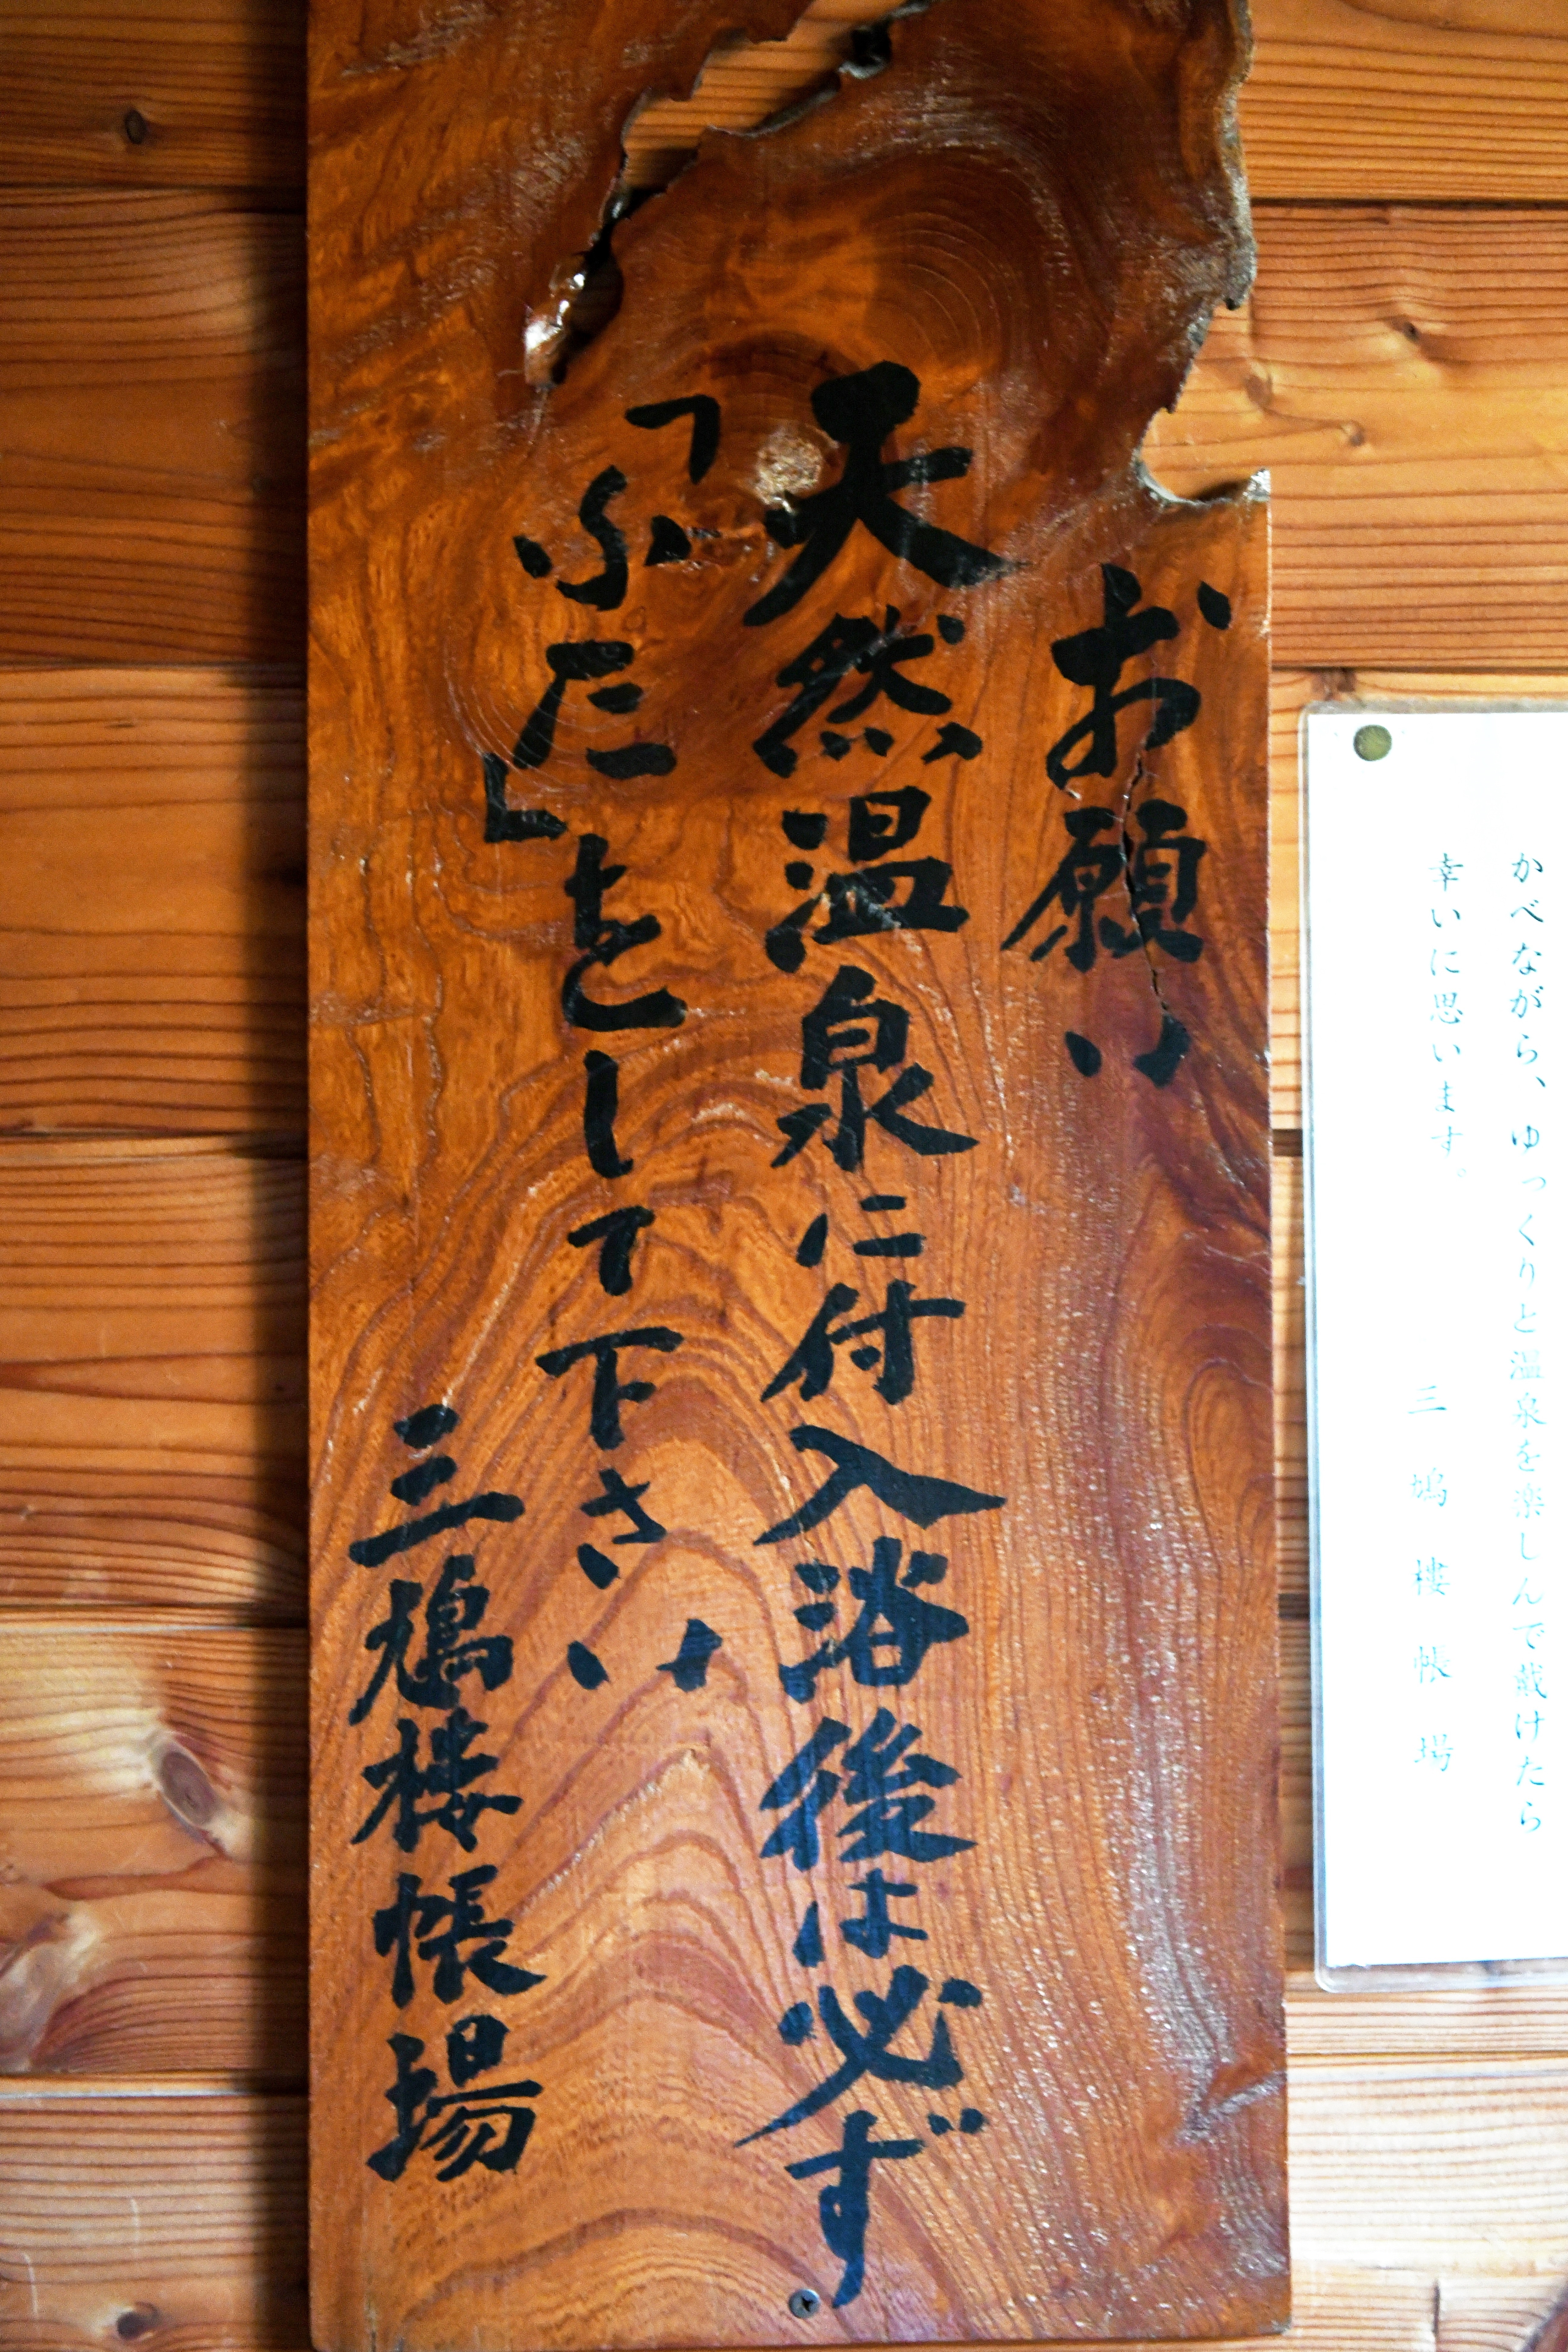 かべながら、ゆっくりと温泉を楽しんで戴けたら
幸いに思います。
三鳩楼帳場
お願い
天然温泉に付入浴後は必ず
「ふた」をして下さい
三鳩楼帳場